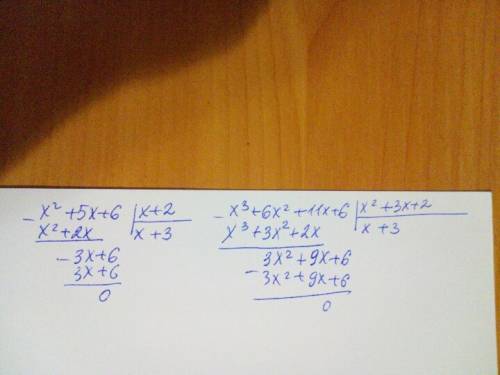 - x² + 5x + 6 | x + 2
x² + 2x | x + 3
- 3x + 6
3x + 6
0
- x³ + 6x² + 11x + 6 | x² + 3x + 2
x³ + 3x² + 2x | x + 3
3x² + 9x + 6
- 3x² + 9x + 6
0